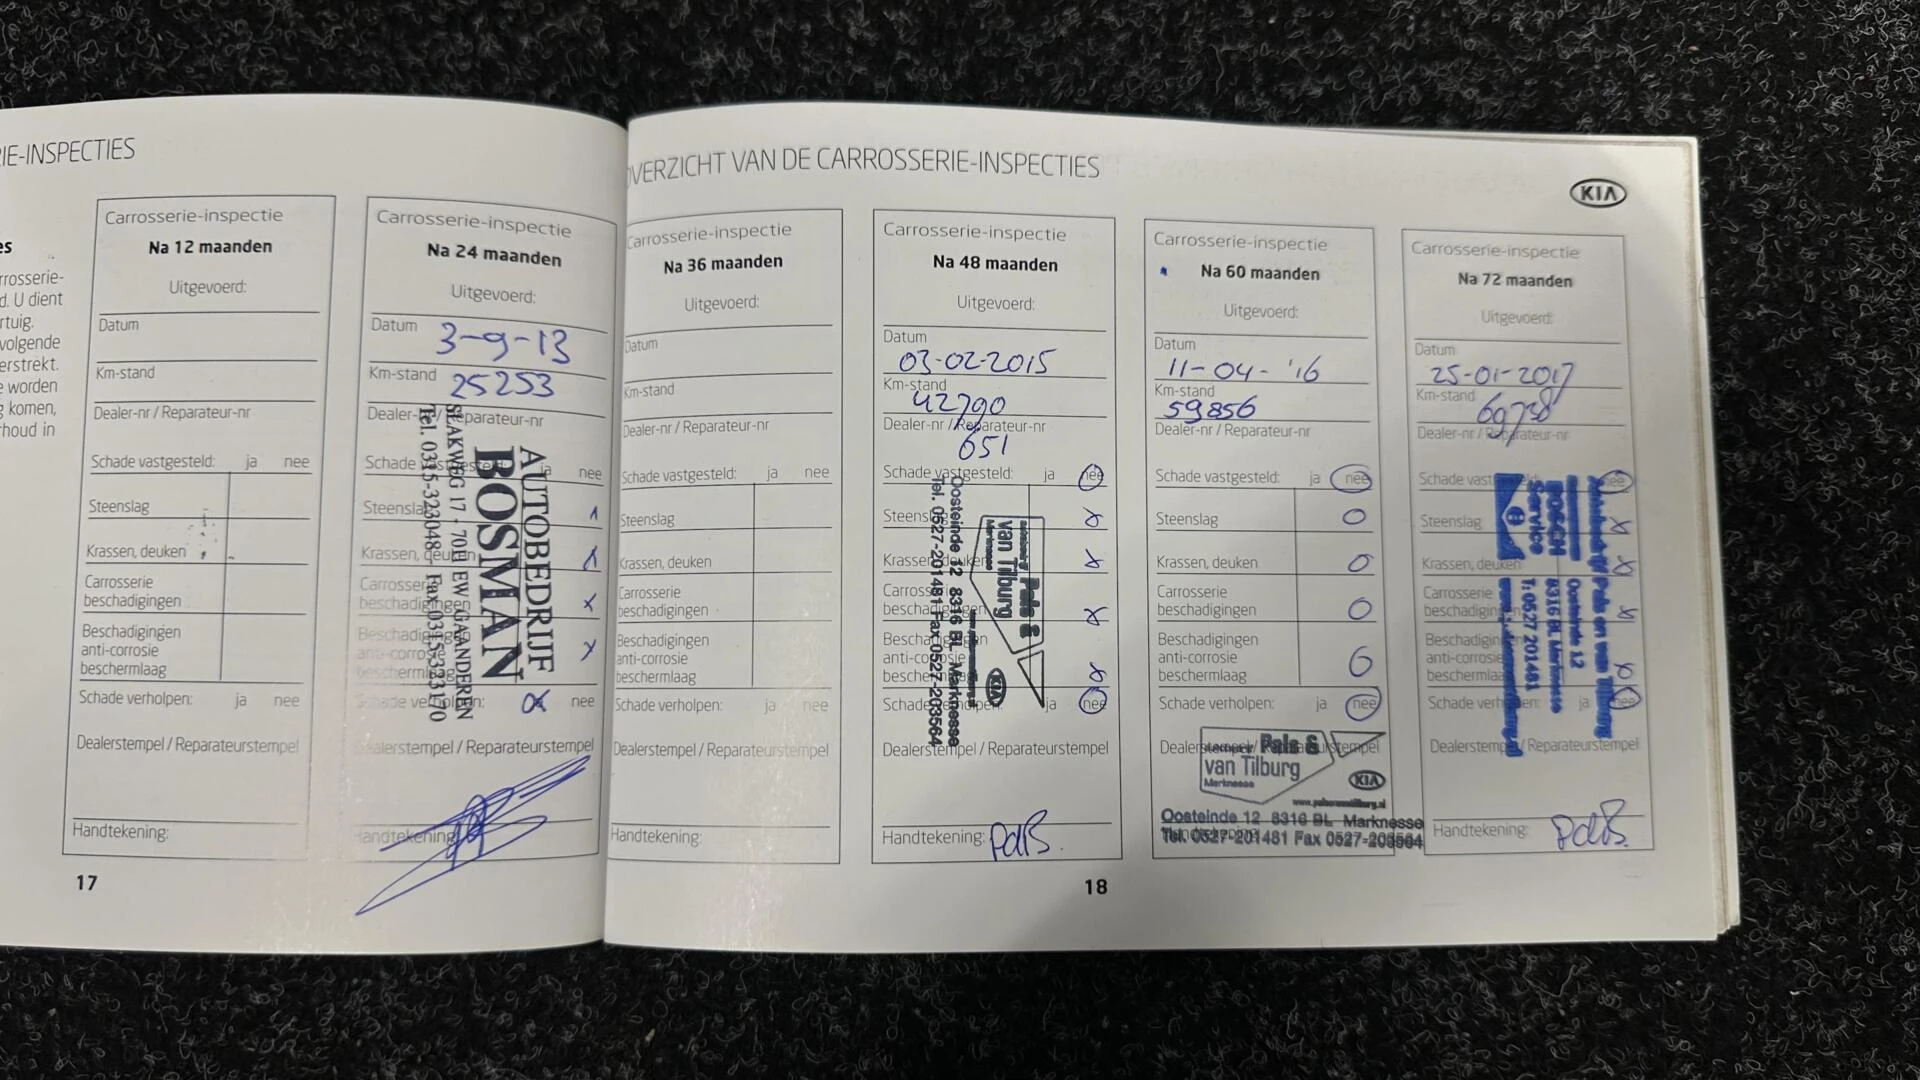 IE-INSPECTIES
es
rrosserie-
d. U dient
rtuig.
volgende
erstrekt.
e worden
g komen,
rhoud in
Carrosserie-inspectie
Na 12 maanden
Uitgevoerd:
Datum
Km-stand
Dealer-nr / Reparateur-nr
Schade vastgesteld: ja nee
Steenslag
Krassen, deuken
Carrosserie
beschadigingen
Beschadigingen
anti-corrosie
beschermlaag
Schade verholpen: ja nee
Dealerstempel / Reparateurstempel
Handtekening:
Carrosserie-inspectie
Na 24 maanden
Uitgevoerd:
Datum 3-9-13
Km-stand 25253
Dealer-nr / Reparateur-nr
Schade vastgesteld: ja nee
Steenslag
Krassen, deuken
Carrosserie
beschadigingen
Beschadigingen
anti-corrosie
beschermlaag
Schade verholpen: nee
Dealerstempel / Reparateurstempel
Handtekening:
AUTOBEDRIJF
BOSMAN
SLAKWEG 17 - 7011 EW GAANDEREN
Tel. 0315-323048 - Fax 0315-333170
17
OVERZICHT VAN DE CARROSSERIE-INSPECTIES
KIA
Carrosserie-inspectie
Na 36 maanden
Uitgevoerd:
Datum
Km-stand
Dealer-nr / Reparateur-nr
Schade vastgesteld: ja nee
Steenslag
Krassen, deuken
Carrosserie
beschadigingen
Beschadigingen
anti-corrosie
beschermlaag
Schade verholpen: ja nee
Dealerstempel / Reparateurstempel
Handtekening:
Carrosserie-inspectie
Na 48 maanden
Uitgevoerd:
Datum
03-02-2015
Km-stand
42790
Dealer-nr / Reparateur-nr
651
Schade vastgesteld: ja nee
Steenslag
Krassen, deuken
Carrosserie
beschadigingen
Beschadigingen
anti-corrosie
beschermlaag
Schade verholpen: ja nee
Dealerstempel / Reparateurstempel
Handtekening: PdB.
Pals &
van Tilburg
Marknesse
KIA
Oosteinde 12 8316 BL Marknesse
Tel. 0527-201481 Fax 0527-203564
Carrosserie-inspectie
Na 60 maanden
Uitgevoerd:
Datum
11-04-'16
Km-stand
59856
Dealer-nr / Reparateur-nr
Schade vastgesteld: ja nee
Steenslag
Krassen, deuken
Carrosserie
beschadigingen
Beschadigingen
anti-corrosie
beschermlaag
Schade verholpen: ja nee
Dealerstempel / Reparateurstempel
Pals &
van Tilburg
Marknesse
KIA
Oosteinde 12 8316 BL Marknesse
Tel. 0527-201481 Fax 0527-203564
Carrosserie-inspectie
Na 72 maanden
Uitgevoerd:
Datum
25-01-2017
Km-stand
69738
Dealer-nr / Reparateur-nr
Schade vastgesteld: nee
Steenslag
Krassen, deuken
Carrosserie
beschadigingen
Beschadigingen
anti-corrosie
beschermlaag
Schade verholpen: ja nee
Dealerstempel / Reparateurstempel
Handtekening: PdB.
Pals en van Tilburg
BOSCH
Service
Oosteinde 12
8316 BL Marknesse
T: 0527 201481
18